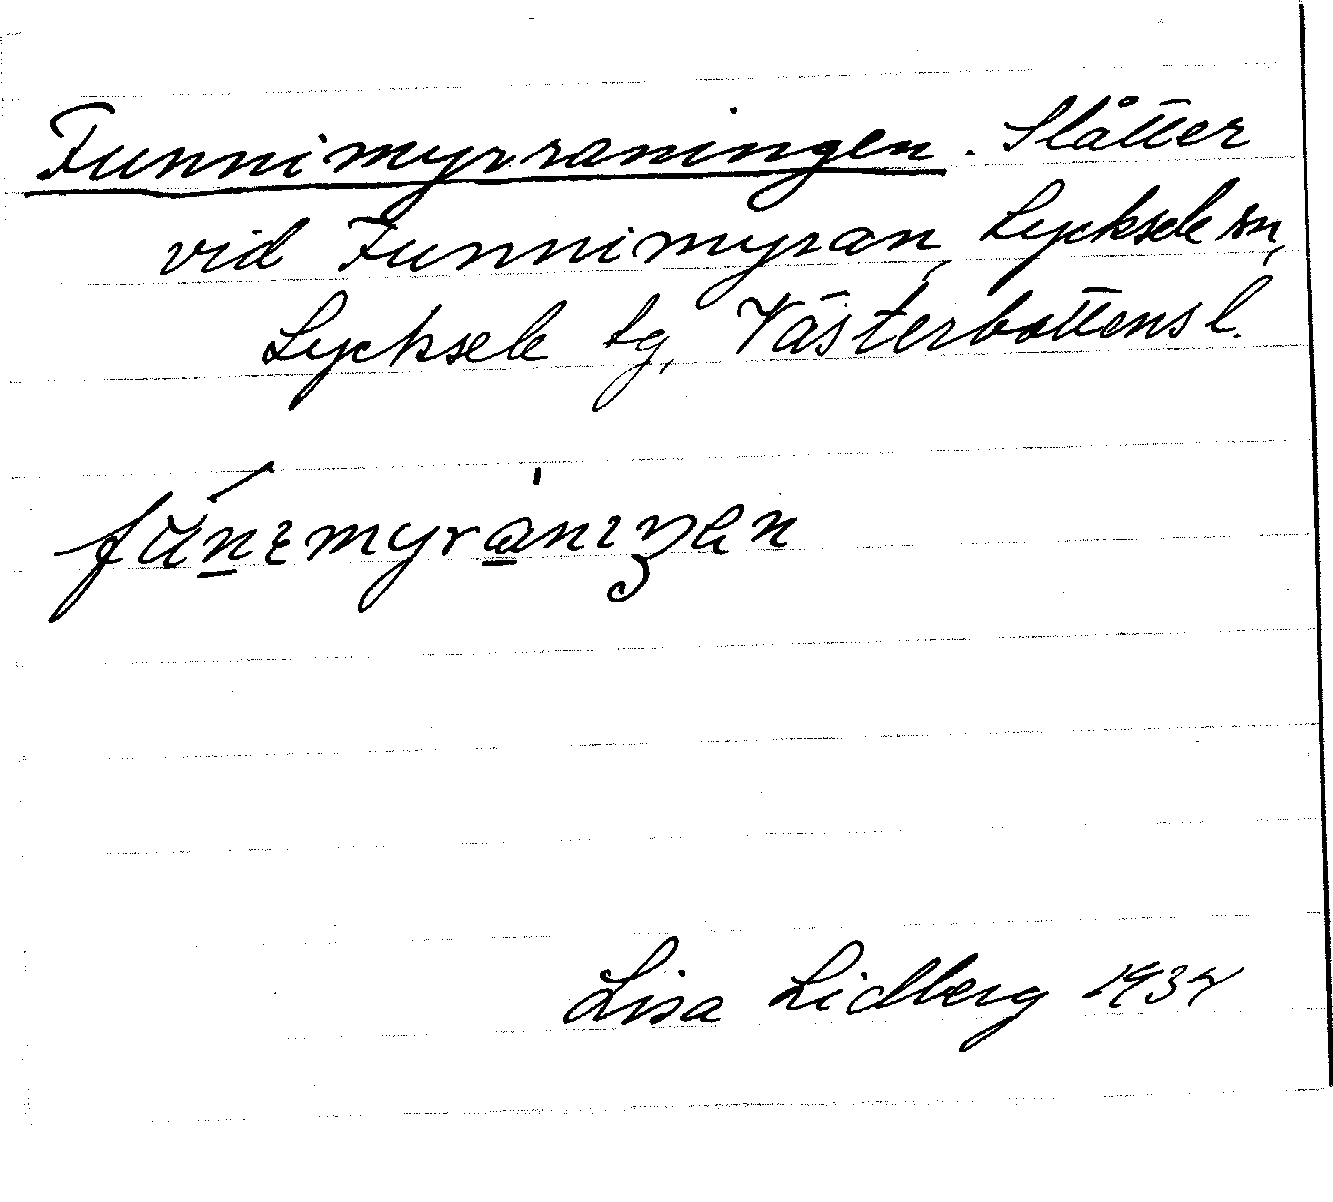 Funnimyrraningen. Slåtter
vid Funnimyran, Lycksele sn,
Lycksele tg, Västerbottens l.
Lisa Lidberg 1934